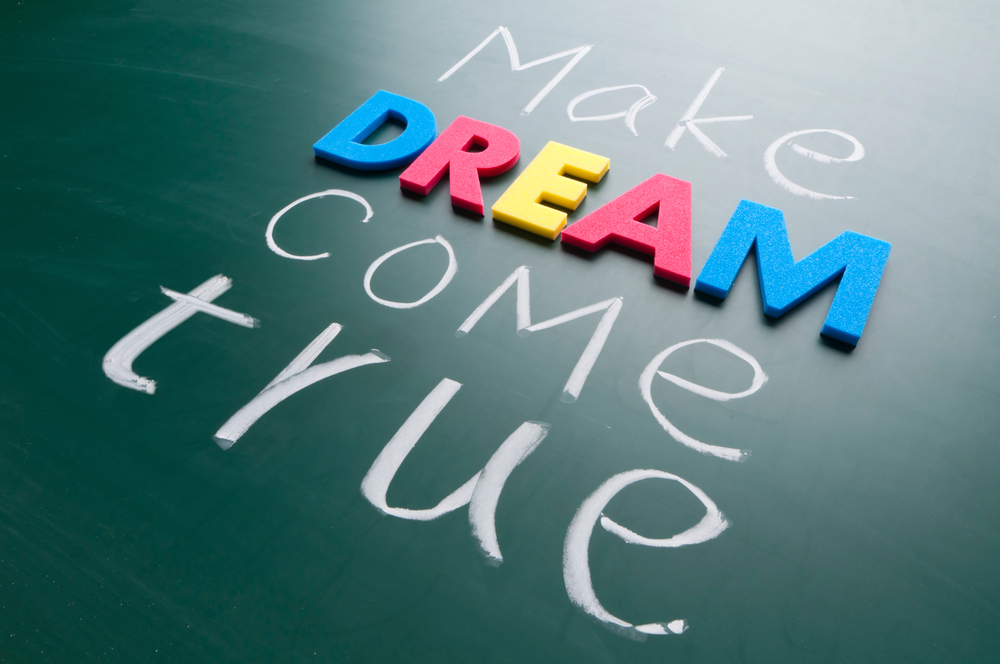 Make
DREAM
coMe
true